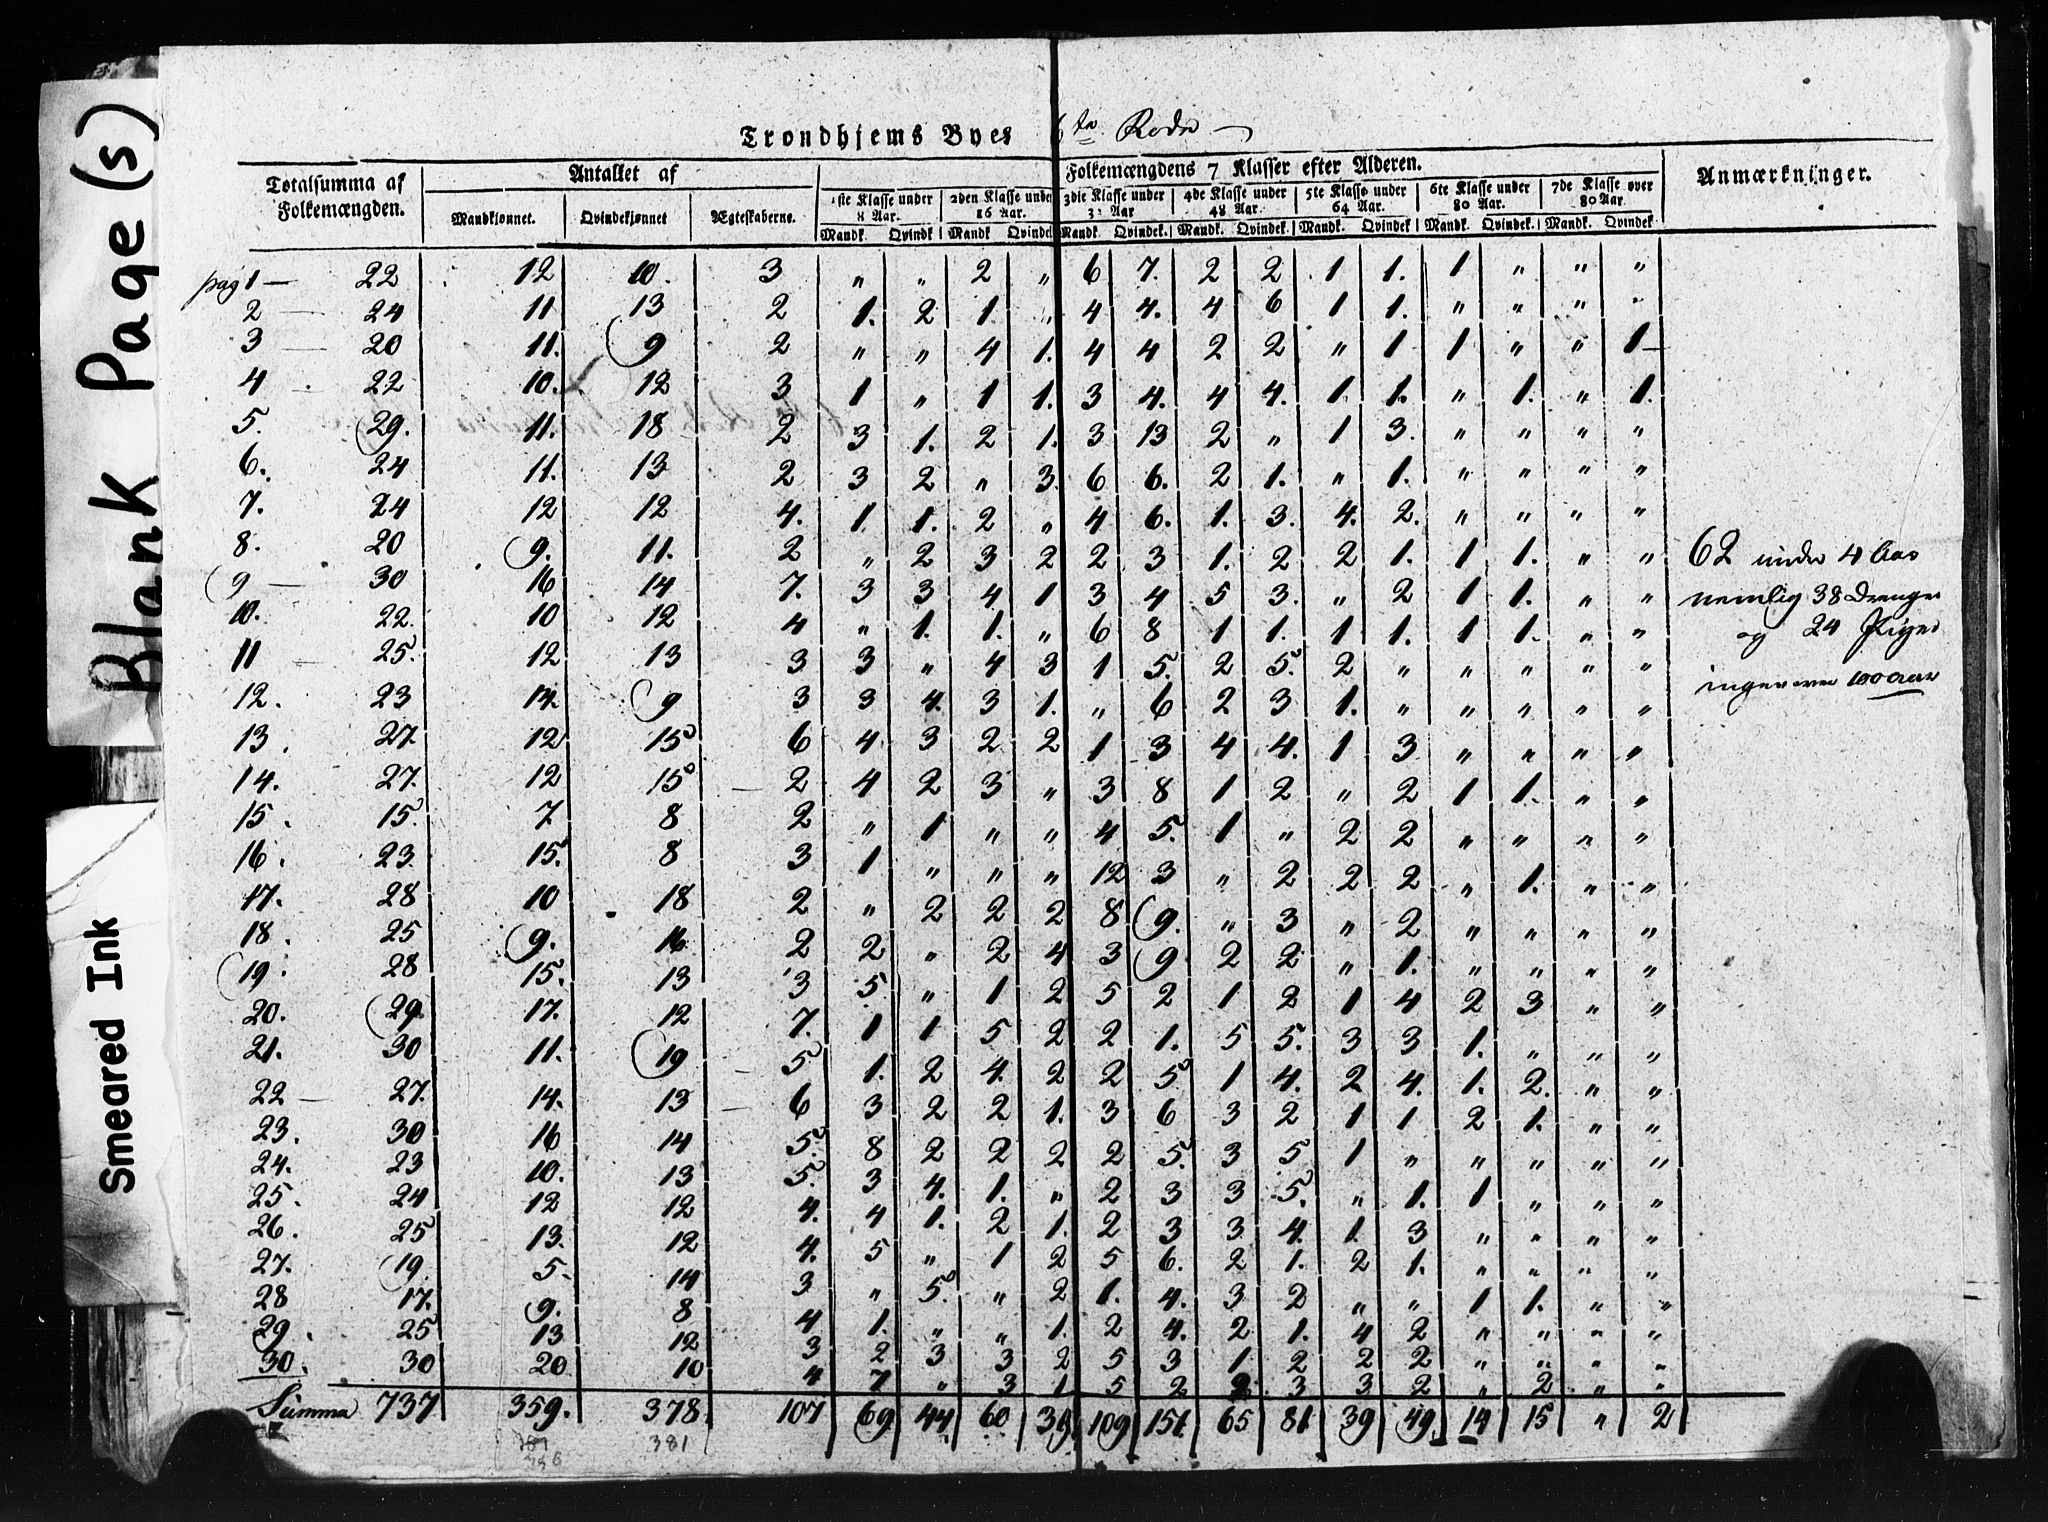 Blank Page(s)
Smeared Ink
Trondhjems Byes 6te Rode
Totalsumma af Folkemængden. | Antallet af | Folkemængdens 7 Klasser efter Alderen. | Anmærkninger.
Mandkjønnet. | Qvindekjønnet | Ægteskaberne. | 1ste Klasse under 8 Aar. | 2den Klasse under 16 Aar. | 3die Klasse under 32 Aar | 4de Klasse under 48 Aar. | 5te Klasse under 64 Aar. | 6te Klasse under 80 Aar. | 7de Klasse over 80 Aar.
Mandk. Qvindk | Mandk Qvindek | Mandk. Qvindek. | Mandk. Qvindek. | Mandk. Qvindek | Mandk. Qvindek. | Mandk. Qvindek
pag 1 — 22 12 10. 3 „ „ 2 „ 6 7. 2 2 1 1. 1 „ „ „
2 — 24 11 13 2 1. 2 1. „ 4 4. 4 6 1 1. „ „ „ „
3 — 20 11. 9 2 „ „ 4 1. 4 4 2 2 „ 1 1 „ „ 1
4 — 22 10. 12 3 1 „ 1 1. 3 4. 4 4. 1. 1. „ 1. „ 1.
5. 29. 11. 18 2 3 1. 2 1. 3 13 2 „ 1 3. „ „ „ „
6. 24 11. 13 2 3 2 „ 3. 6 6. 2 1. „ 1. „ „ „ „
7. 24 12 12 4. 1. 1. 2 „ 4 6. 1. 3. 4. 2. „ „ „ „
8. 20 9. 11. 2 „ 2 3 2 2 3 1. 2 2 1. 1 1. „ „
9 — 30 16 14 7. 3 3 4. 1 3 4 5 3. „ 2 1 1. „ „
10. 22. 10 12 4 „ 1. 1. „ 6 8 1 1. 1 1. 1 1. „ „
11 — 25. 12 13 3 3 „ 4 3 1 5. 2 5. 2 „ „ „ „ „
12. 23 14 9 3 3 4. 3 1. „ 6 2 3 1. „ „ „ „ „
13. 27. 12 15 6 4 3 2 2 1 3 4 4. 1 3 „ „ „ „
14. 27. 12 15 2 4 2 3 „ 3 8 1 2 „ 2 1 1. „ „
15. 15. 7 8 2 „ 1 „ „ 4 5. 1 „ 2 2 „ „ „ „
16. 23. 15. 8 3 1 „ „ „ 12 3 „ 2 2 2 „ 1. „ „
17. 28 10 18 2 „ 2 2 2 8 9. „ 3 „ 2 „ „ „ „
18. 25 9. 16 2 2 „ 2 4 3 9 2 2 „ 1. „ „ „ „
19. 28 15. 13 3 5. „ 1 2 5 2 1 2 1 4 2 3 „ „
20. 29 17. 12 7. 1 1 5 2 2 1. 5 5. 3 3 1. „ „ „
21. 30 11. 19 5 1. 2 4. 2 2 5 1 4. 2 4. 1. 2. „ „
22 — 27. 14. 13 6 3 2 2 1. 3 6 3 2 1 1 2 1. „ „
23. 30 16 14 5. 8 2 2 2 2 5. 3 5 1 „ „ „ „ „
24. 23 10. 13 5. 3 4. 1. „ 2 3 3 5. „ 1. 1 „ „ „
25. 24 12 12 4. 4 1. 2 1. 2 3 3 4. 1. 3 „ „ „ „
26. 25 13. 12 4. 5 „ 1 2 5 6. 2 1. 2 1. „ „ „ „
27. 19 5. 14 3 „ 5. „ 2 1. 4. 3 2 „ „ 1 1. „ „
28 17. 9. 8 4 1. „ „ 1. 2 4. 2 1. 4 2 „ „ „ „
29. 25 13 12 3 2 3 3 2 5 3 1 2 2 2 „ „ „ „
30. 30 20 10 4 7 „ 3 1 5 2 2 3 3 2 „ 2 „ „
Summa 737 359. 378. 107 69 44 60 39 109 151. 65 81 39 49. 14 15 „ 2
381
62 under 4 Aar
nemlig 38 Drenge
og 24 Piger
ingen over 100 aar